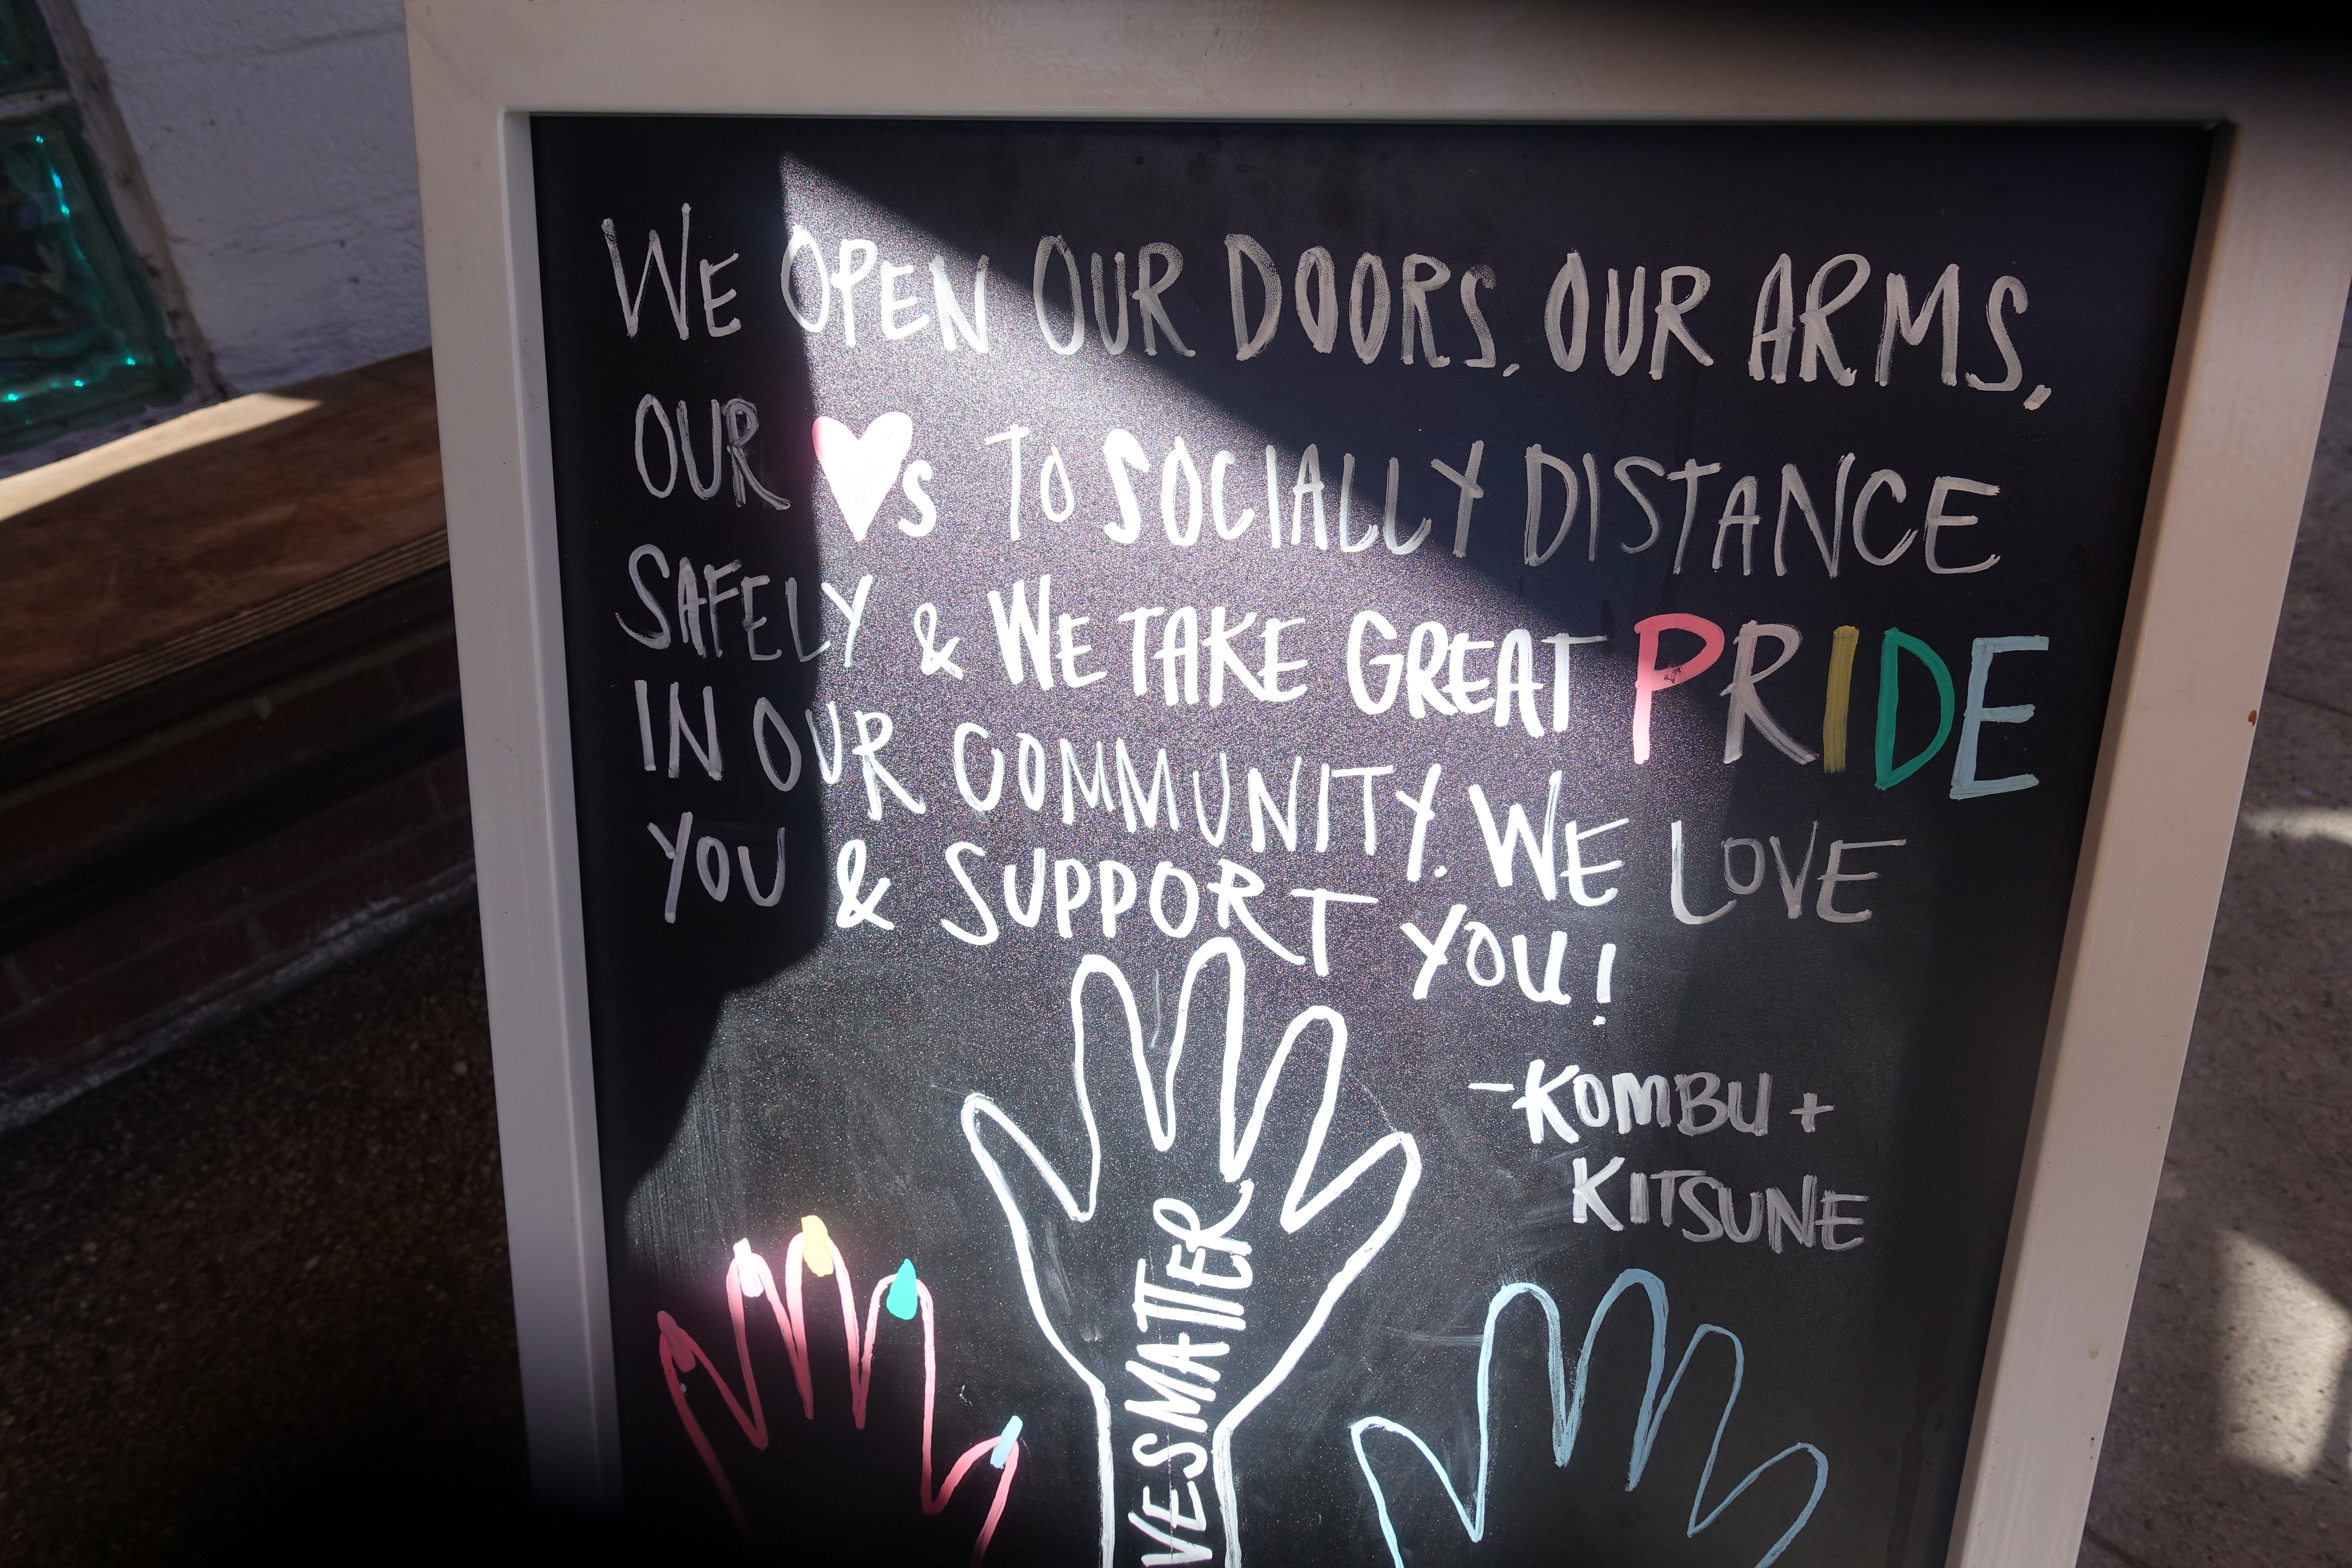 WE OPEN OUR DOORS, OUR ARMS,
OUR ♥s TO SOCIALLY DISTANCE
SAFELY & WE TAKE GREAT PRIDE
IN OUR COMMUNITY. WE LOVE
YOU & SUPPORT YOU!
-KOMBU +
KITSUNE
VESMATTER